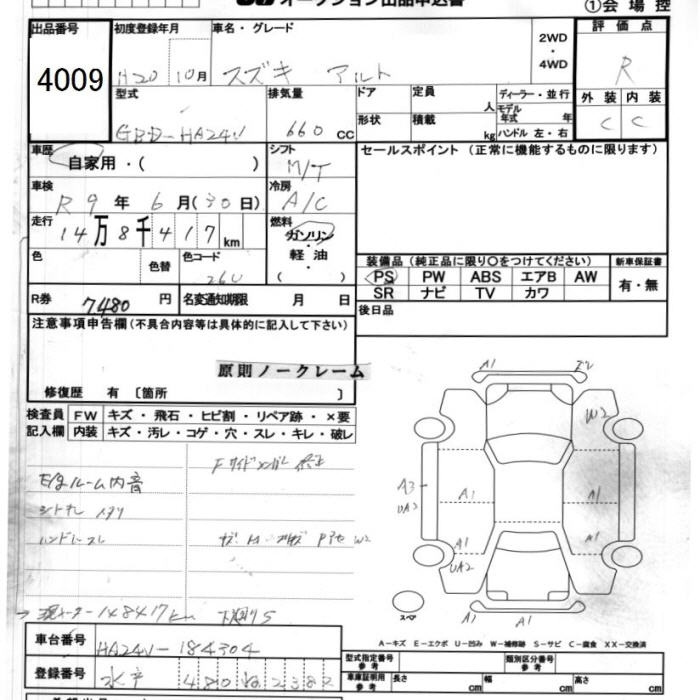 オークション出品申込書
①会場控
出品番号
4009
初度登録年月
H20 10月
車名・グレード
スズキ アルト
2WD
・
4WD
評価点
R
型式
GBD-HA24V
排気量
660 CC
ドア
定員
人
ディーラー・並行
モデル年式 年
外装 内装
C C
形状
積載
kg
ハンドル 左・右
車歴
自家用・( )
シフト
M/T
セールスポイント (正常に機能するものに限ります)
車検
R 9 年 6 月 (30日)
冷房
A/C
走行
14万8千417km
燃料
ガソリン
・
軽油
・
( )
色
色替
色コード
26U
装備品 (純正品に限り〇をつけてください)
新車保証書
PS PW ABS エアB AW
SR ナビ TV カワ
有・無
R券
7480 円
名変通知期限 月 日
後日品
注意事項申告欄(不具合内容等は具体的に記入して下さい)
原則ノークレーム
修復歴 有 〔箇所 〕
検査員
記入欄
FW キズ・飛石・ヒビ割・リペア跡・×要
内装 キズ・汚レ・コゲ・穴・スレ・キレ・破レ
ルーム内音
現メーター148417km
A1
W2
A3
UA2
A1
A1
A1
UA2
A1
A1
A1
スペア
A-キズ E-エクボ U-凹み W-補修跡 S-サビ C-腐食 XX-交換済
車台番号
HA24V-184304
登録番号
水戸 480
型式指定番号
参考
類別区分番号
参考
車庫証明用
参考
長さ cm
幅 cm
高さ cm